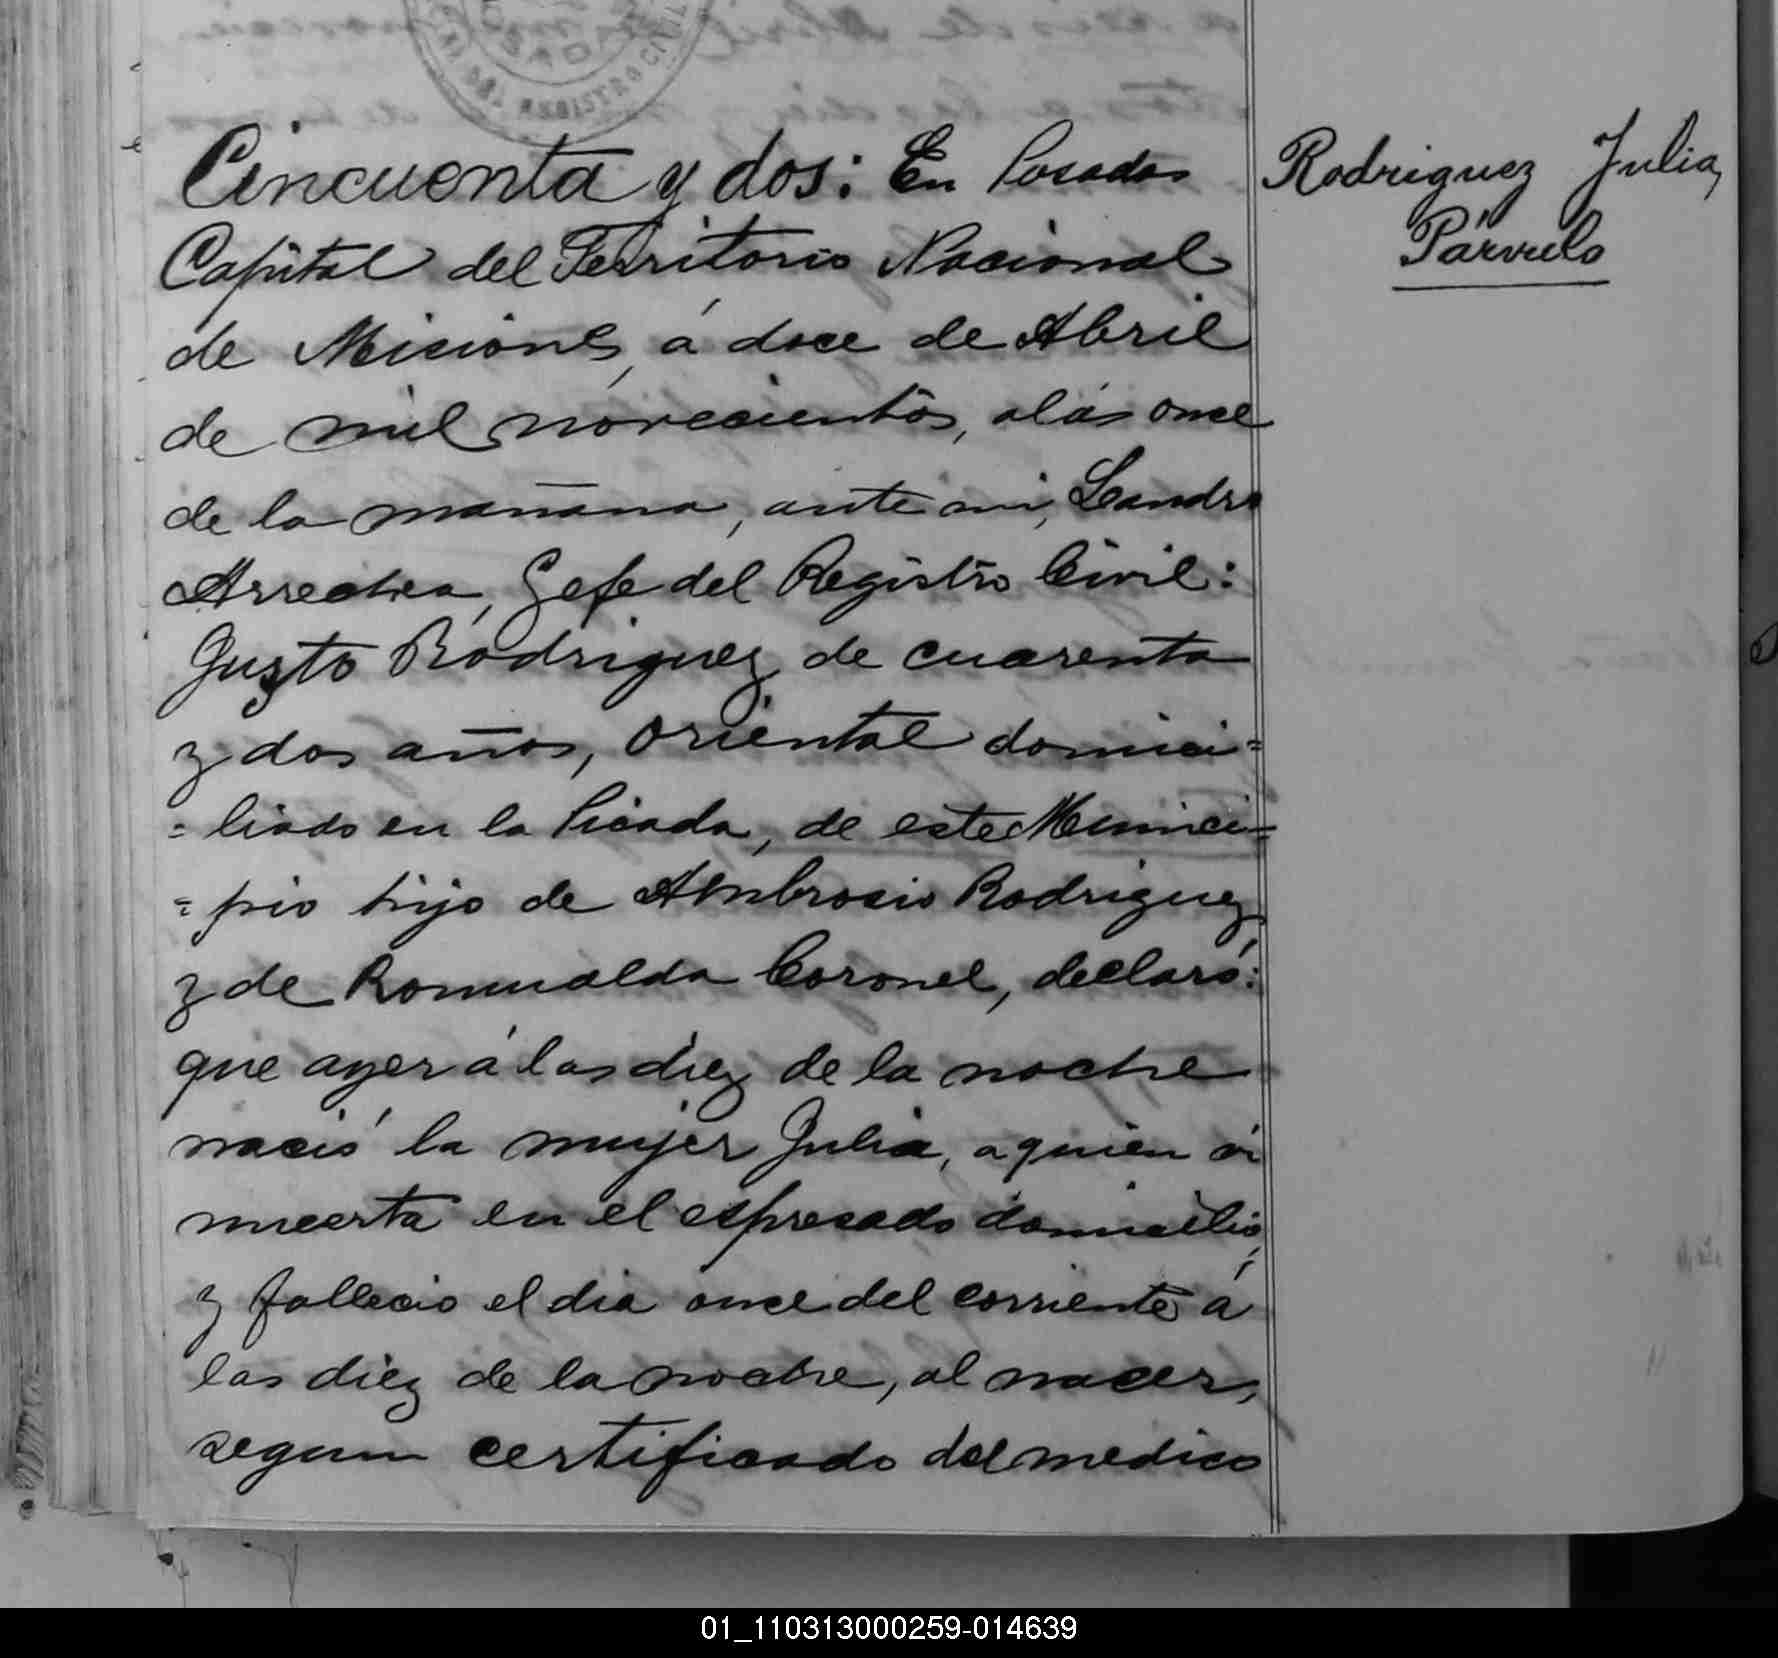 DEL REGISTRO CIVIL
Cincuenta y dos: En Posadas
Capital del Territorio Nacional
de Misiones, á doce de Abril
de mil novecientos, alás once
de la mañana, ante mi, Leandro
Arrechea, Gefe del Registro Civil:
Justo Rodriguez de cuarenta
y dos años, oriental domici=
=liado en la Picada, de este Munici=
=pio hijo de Ambrosio Rodriguez
y de Romualda Coronel, declaró:
que ayer á las diez de la noche
nació la mujer Julia, a quien ví
muerta en el espresado domicilio,
y fallecio el dia once del corriente á
las diez de la noche, al nacer,
segun certificado del medico
Rodriguez Julia,
Párvulo
01_110313000259-014639